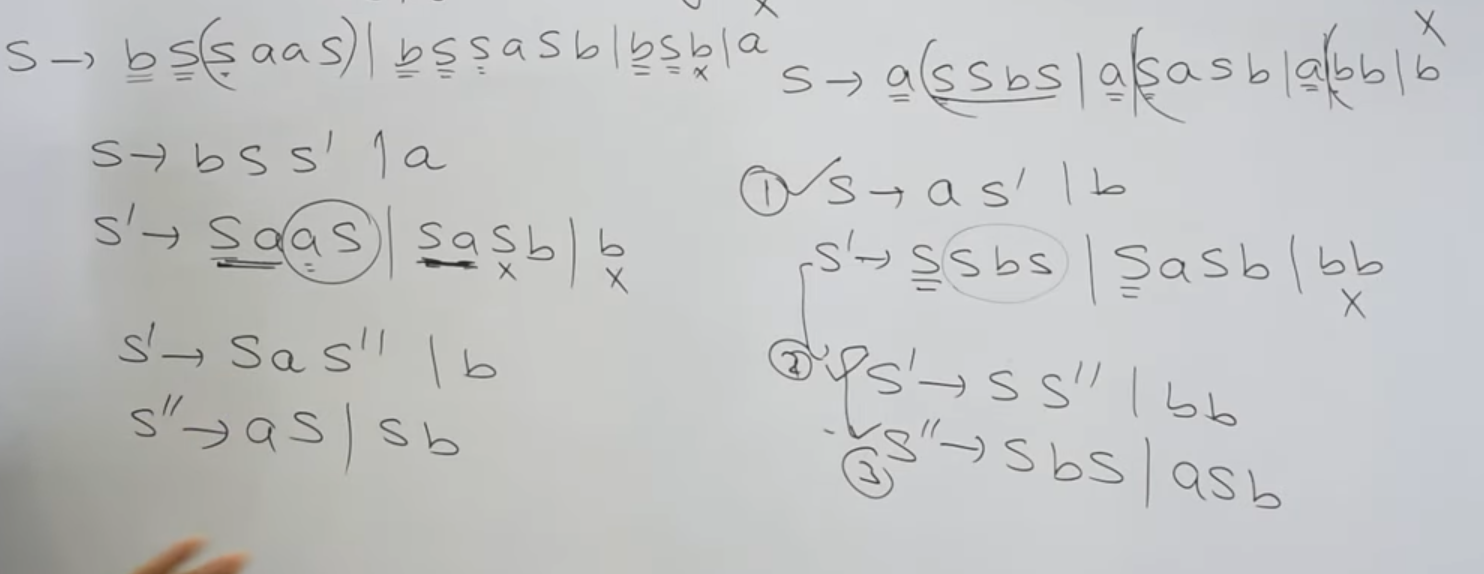 S → bS(SaaS) | bSSaSb | bSb | a
S → bSS' | a
S' → SaaS | SaSb | b
S' → SaS'' | b
S'' → aS | Sb
x
S → a(SSbS | a(SaSb | a(bb | b
① ✓ S → aS' | b
S' → SSbS | SaSb | bb
② S' → SS'' | bb
③ S'' → SbS | aSb